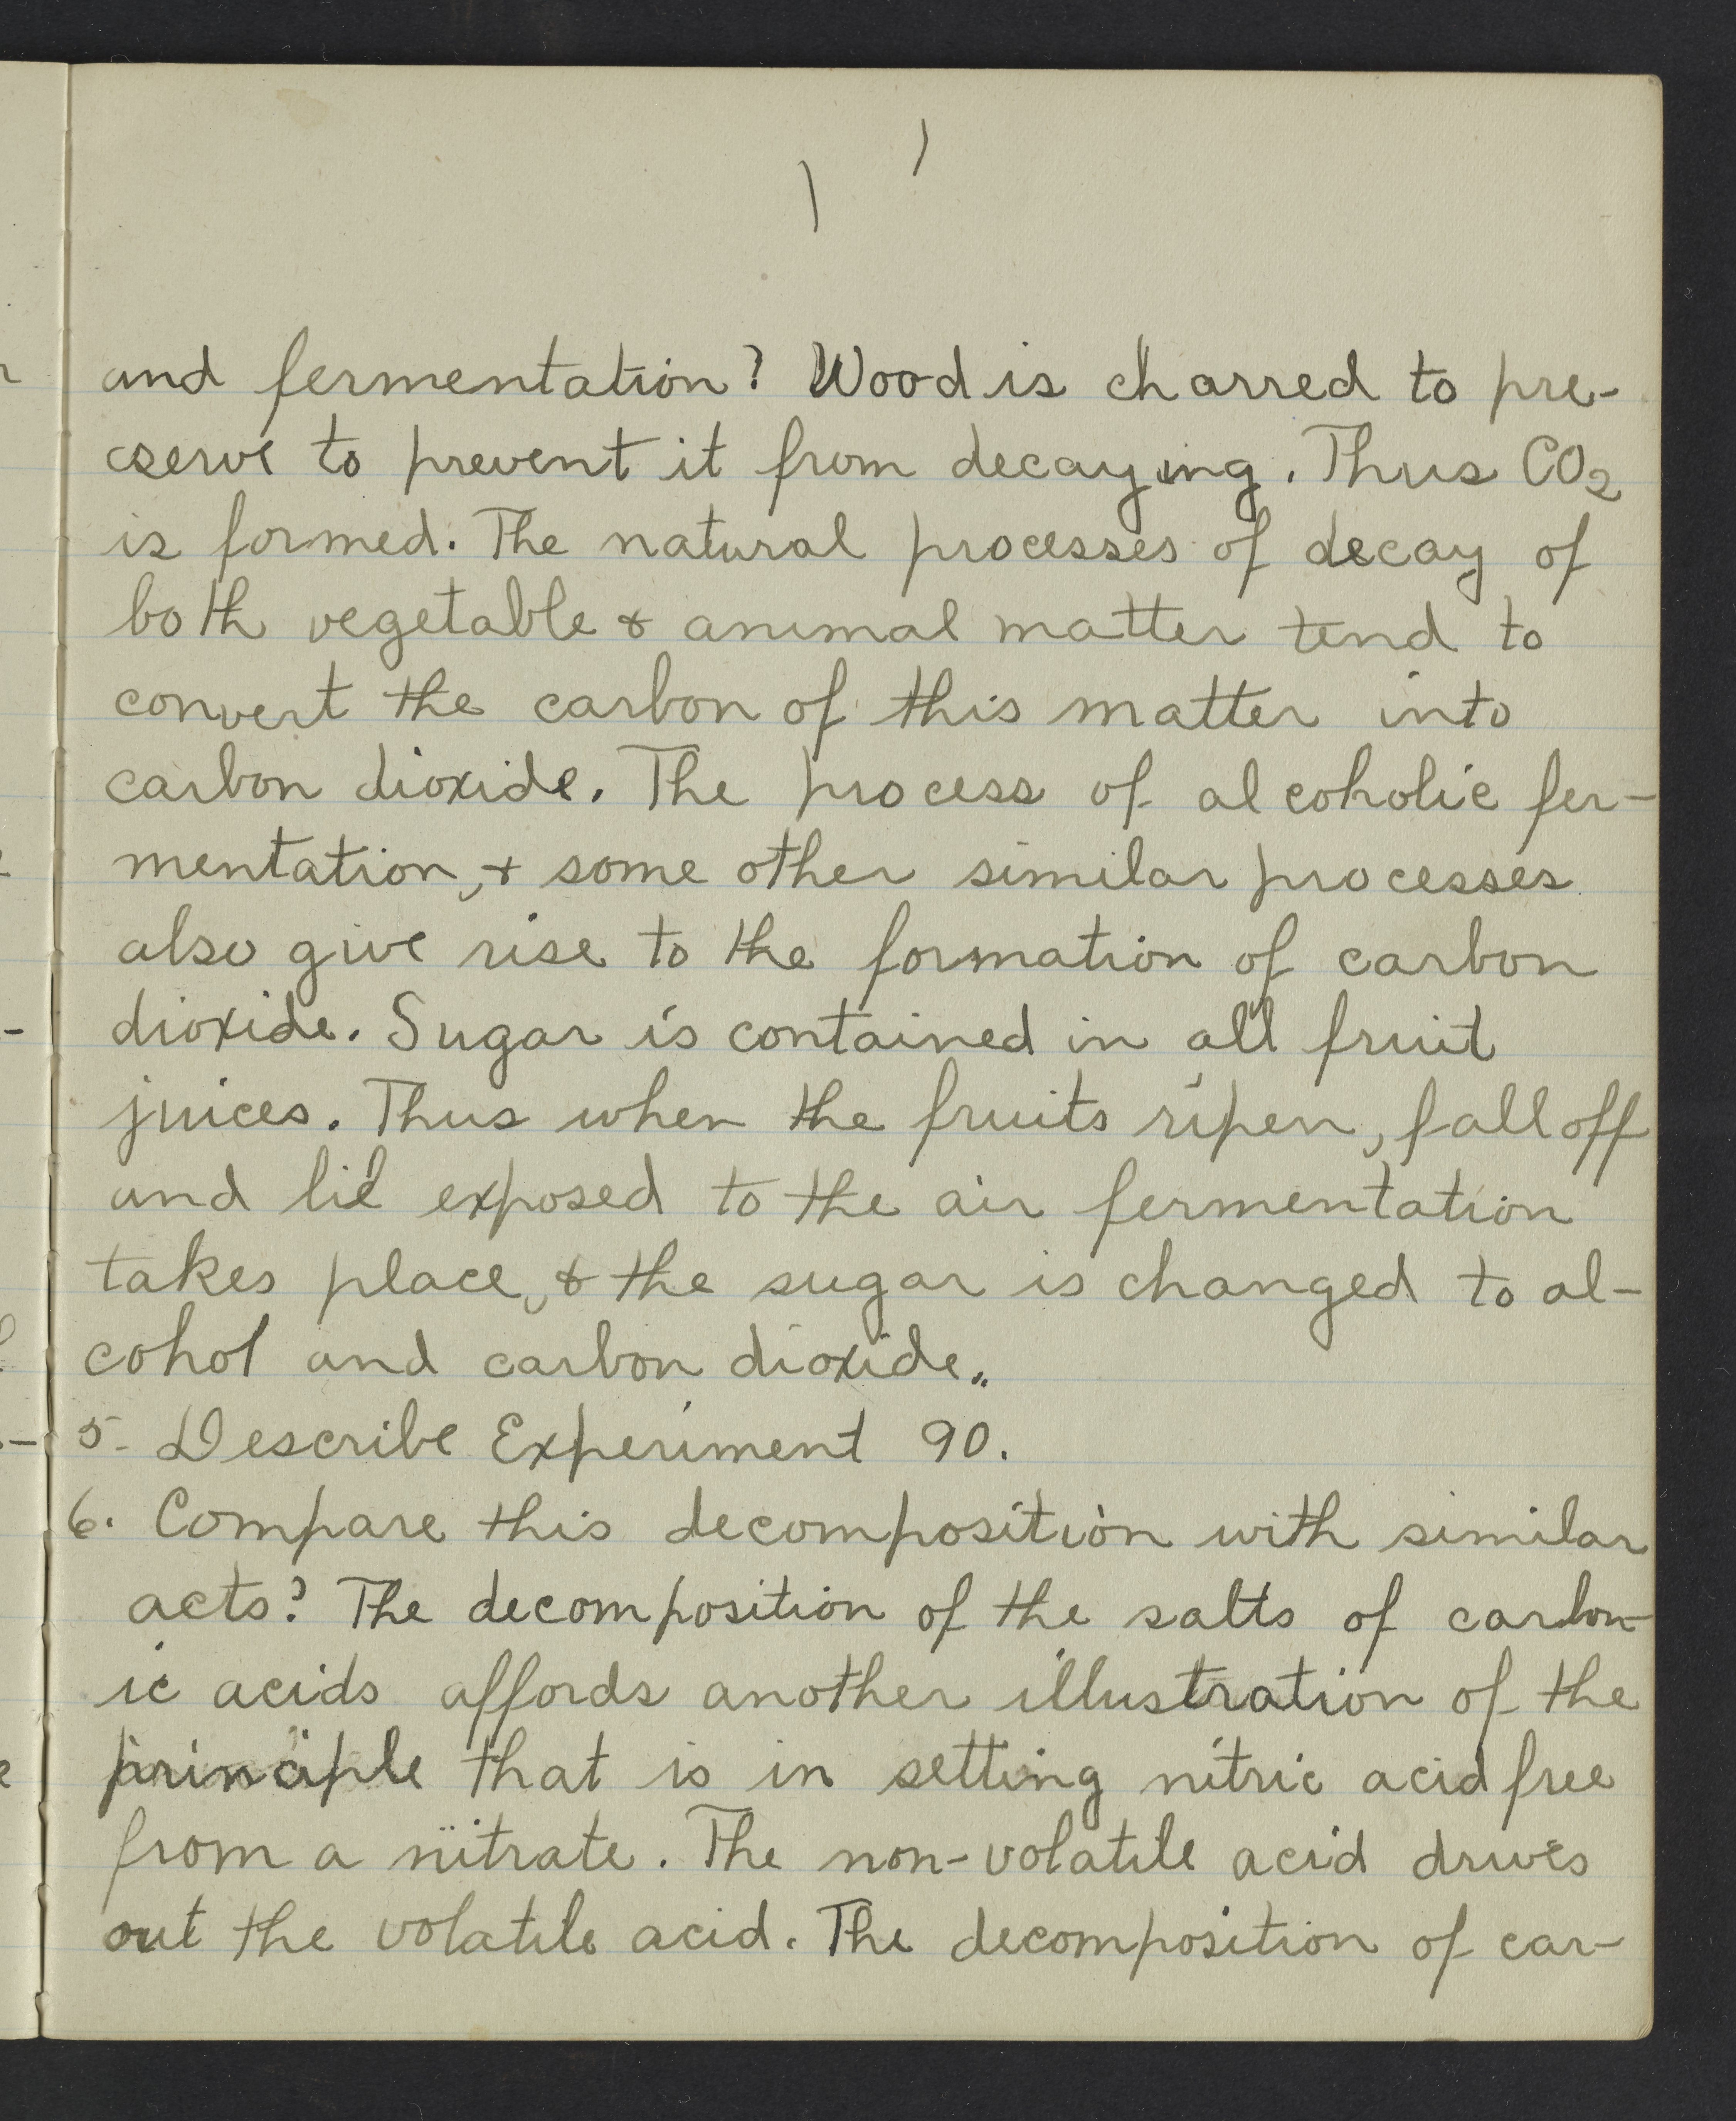 and fermentation? Wood is charred to pre-
serve to prevent it from decaying. Thus CO2
is formed. The natural processes of decay of
both vegetable & animal matter tend to
convert the carbon of this matter into
carbon dioxide. The process of alcoholic fer-
mentation, & some other similar processes
also give rise to the formation of carbon
dioxide. Sugar is contained in all fruit
juices. Thus when the fruits ripen, fall off
and lie exposed to the air fermentation
takes place, & the sugar is changed to al-
cohol and carbon dioxide.
5. Describe Experiment 90.
6. Compare this decomposition with similar
acts? The decomposition of the salts of carbon-
ic acids affords another illustration of the
principle that is in setting nitric acid free
from a nitrate. The non-volatile acid drives
out the volatile acid. The decomposition of car-